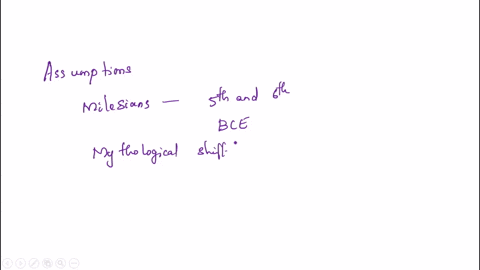 Assumptions
Milesians — 5th and 6th
BCE
Mythological shift